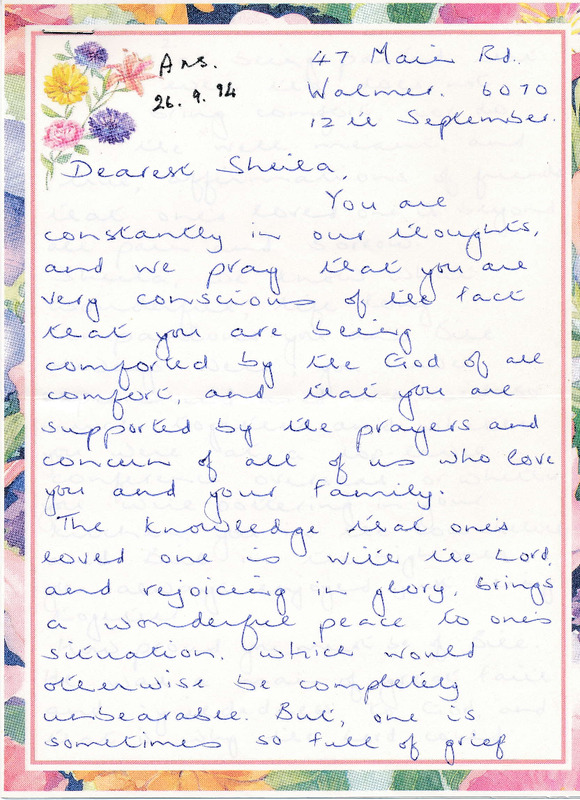 Ans.
26.9.94
47 Main Rd.
Walmer. 6070
12th September.
Dearest Sheila,
You are
constantly in our thoughts,
and we pray that you are
very conscious of the fact
that you are being
comforted by the God of all
comfort, and that you are
supported by the prayers and
concern of all of us who love
you and your family.
The knowledge that one's
loved one is with the Lord,
and rejoicing in glory, brings
a wonderful peace to one's
situation. which would
otherwise be completely
unbearable. But, one is
sometimes so full of grief